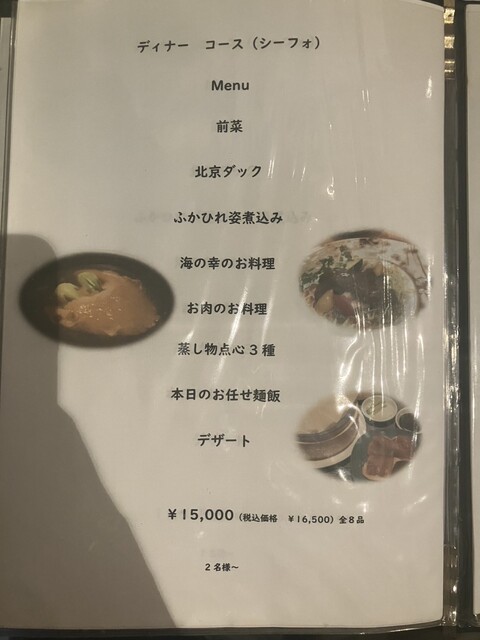 ディナー　コース（シーフォ）
Menu
前菜
北京ダック
ふかひれ姿煮込み
海の幸のお料理
お肉のお料理
蒸し物点心３種
本日のお任せ麺飯
デザート
￥15,000（税込価格　￥16,500）全８品
２名様～